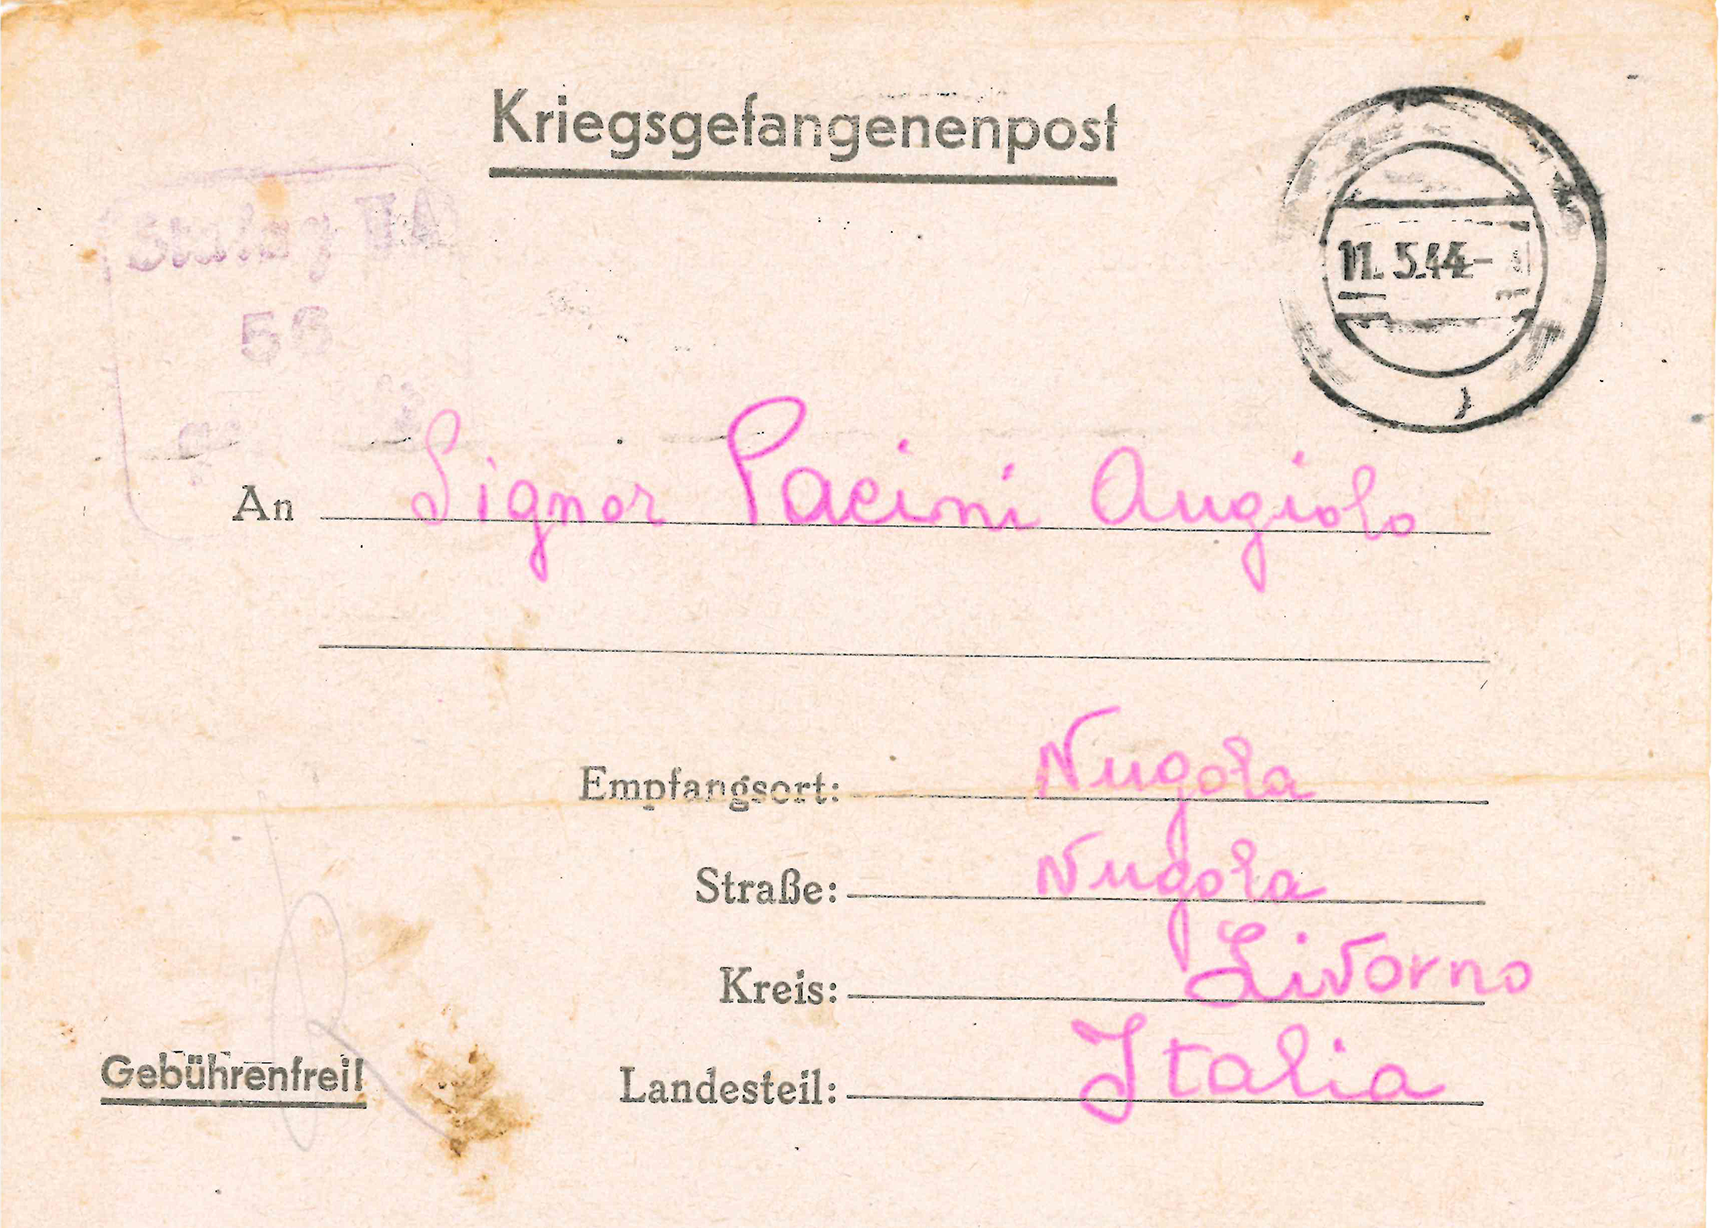 Kriegsgefangenenpost
Stalag II A
56
11.5.44-
An Signor Pacini Angiolo
Empfangsort: Nugola
Straße: Nugola
Kreis: Livorno
Landesteil: Italia
Gebührenfrei!